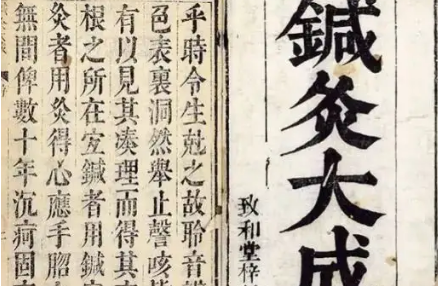 鍼灸大成
致和堂梓
乎時令生尅之故聆音
色表裏洞然舉止謦咳
有以見其凑理而得其
根之所在宐鍼者用鍼
灸者用灸得心應手脗
無間俾數十年沉痾固